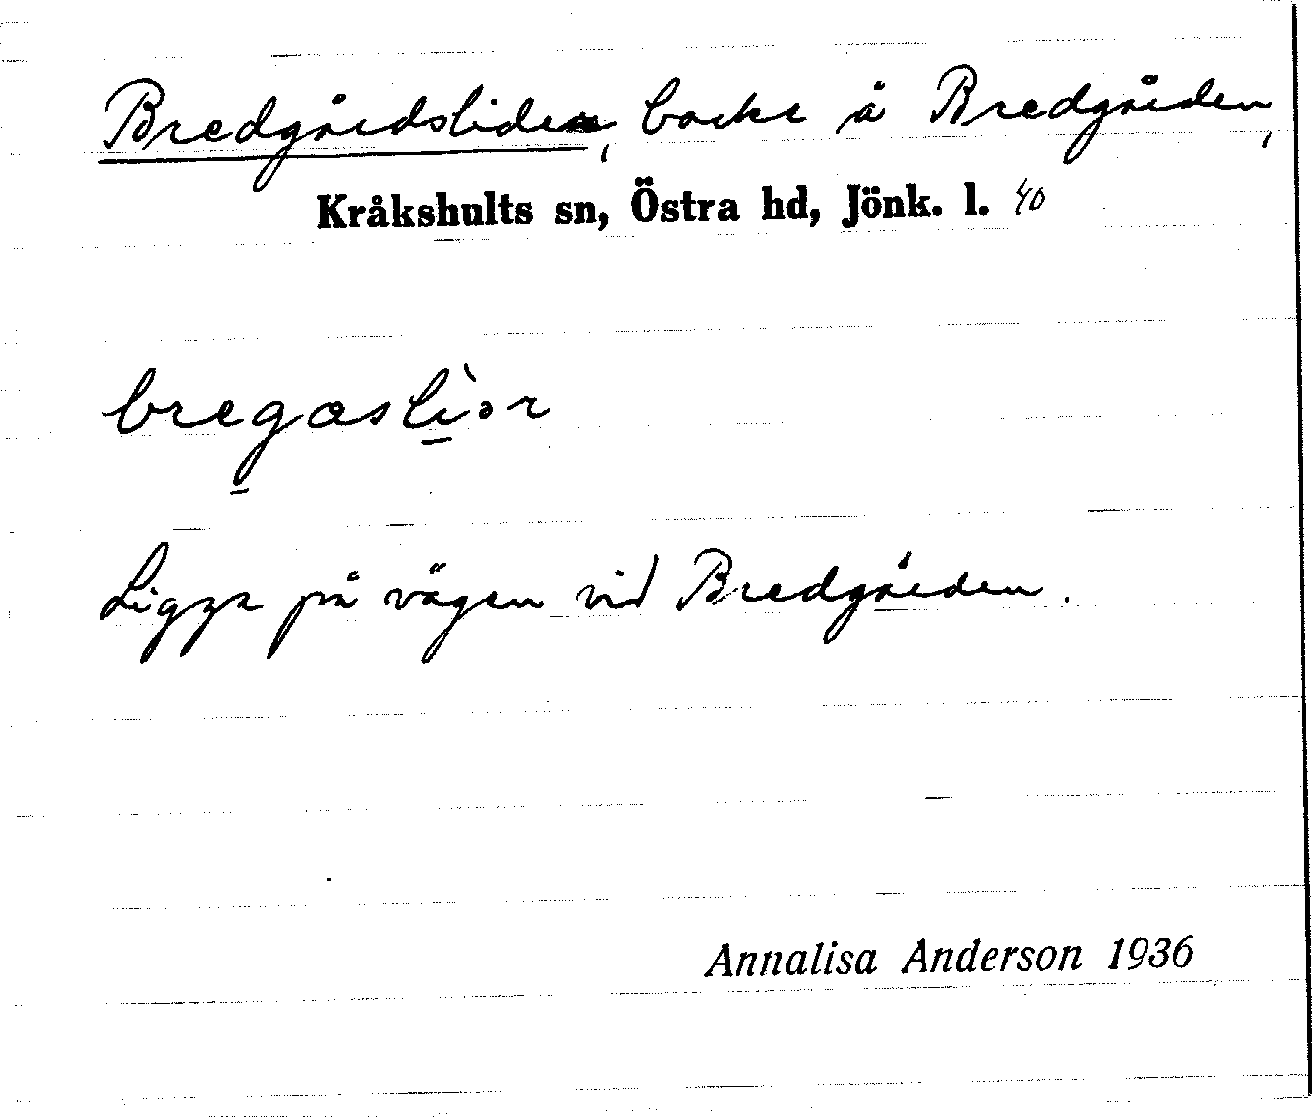 Bredgårdsliden, backe å Bredgården,
Kråkshults sn, Östra hd, Jönk. l. 40
bregasliər
Ligger på vägen vid Bredgården.
Annalisa Anderson 1936